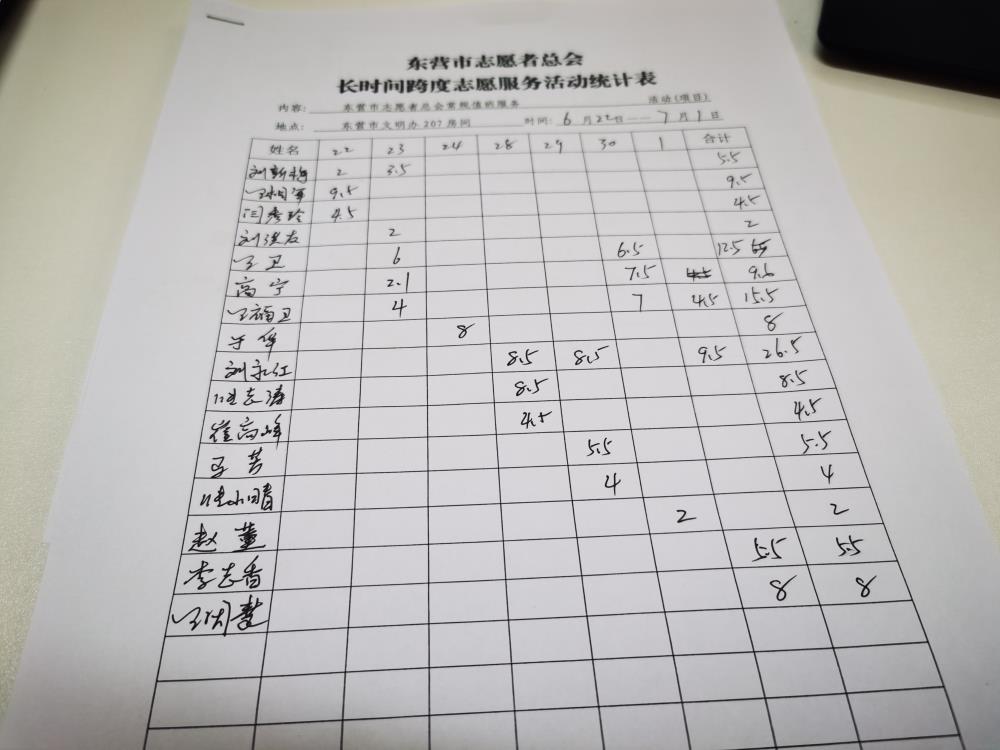 东营市志愿者总会
长时间跨度志愿服务活动统计表
内容: 东营市志愿者总会常规值的服务 活动(项目)
地点: 东营市文明办207房间 时间: 6月22日——7月1日
姓名 22 23 24 28 29 30 1 合计
刘新梅 2 3.5 5.5
9.5 9.5
闫秀玲 4.5 4.5
刘洪友 2 2
王卫 6 6.5 12.5
高宁 2.1 7.5 4.5 9.6
王福卫 4 7 4.5 15.5
于华 8 8
刘永红 8.5 8.5 9.5 26.5
汪志涛 8.5 8.5
崔高峰 4.5 4.5
王芳 5.5 5.5
4 4
赵董 2 2
李志香 5.5 5.5
8 8